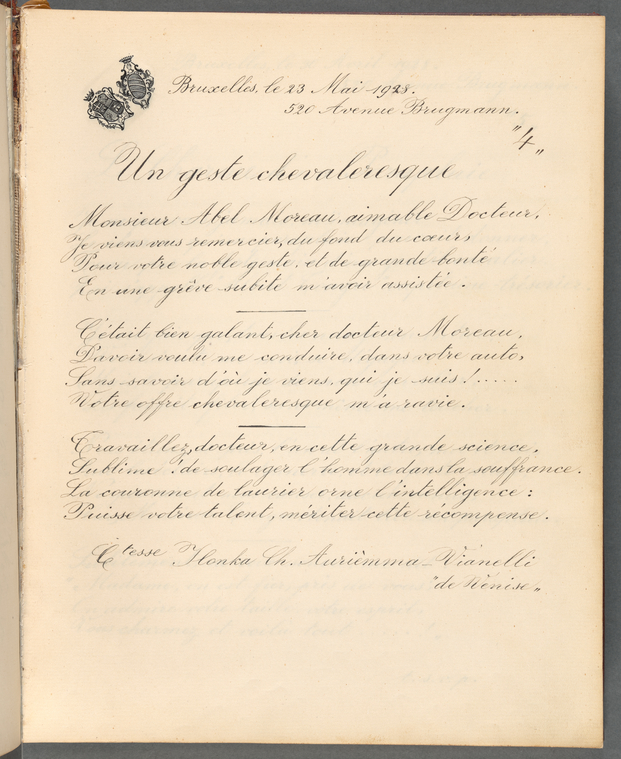 Bruxelles, le 23 Mai 1928.
520 Avenue Brugmann.
"4„
Un geste chevaleresque
Monsieur Abel Moreau, aimable Docteur,
Je viens vous remercier, du fond du cœur,
Pour votre noble geste, et de grande bonté
En une grêve subite m'avoir assistée.
C'était bien galant, cher docteur Moreau,
D'avoir voulu me conduire, dans votre auto,
Sans savoir d'où je viens, qui je suis!.....
Votre offre chevaleresque m'a ravie.
Travaillez, docteur, en cette grande science,
Sublime! de soulager l'homme dans la souffrance.
La couronne de laurier orne l'intelligence:
Puisse votre talent, mériter cette récompense.
Ctesse Ilonka Ch. Auriemma-Vianelli
"de Venise„